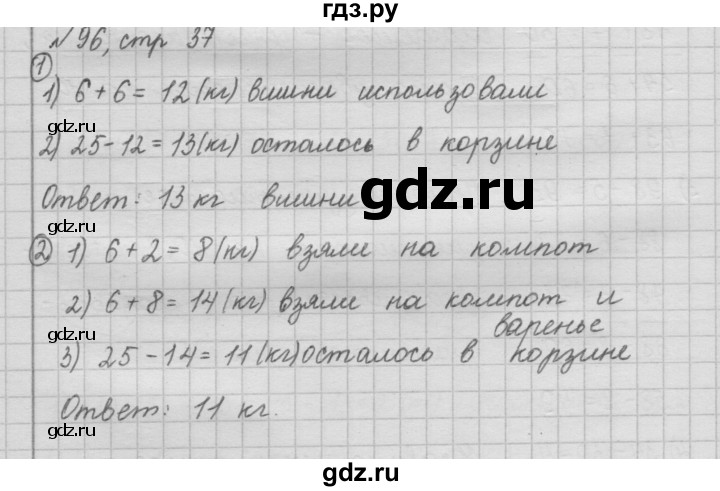 гдз.ру
№ 96, стр 37
①
1) 6 + 6 = 12 (кг) вишни использовали
gdz.ru
2) 25 - 12 = 13 (кг) осталось в корзине
gdz.ru
Ответ: 13 кг вишни
gdz.ru
② 1) 6 + 2 = 8 (кг) взяли на компот
gdz.ru
2) 6 + 8 = 14 (кг) взяли на компот и
варенье
gdz.ru
3) 25 - 14 = 11 (кг) осталось в корзине
Ответ: 11 кг.
gdz.ru
gdz.ru